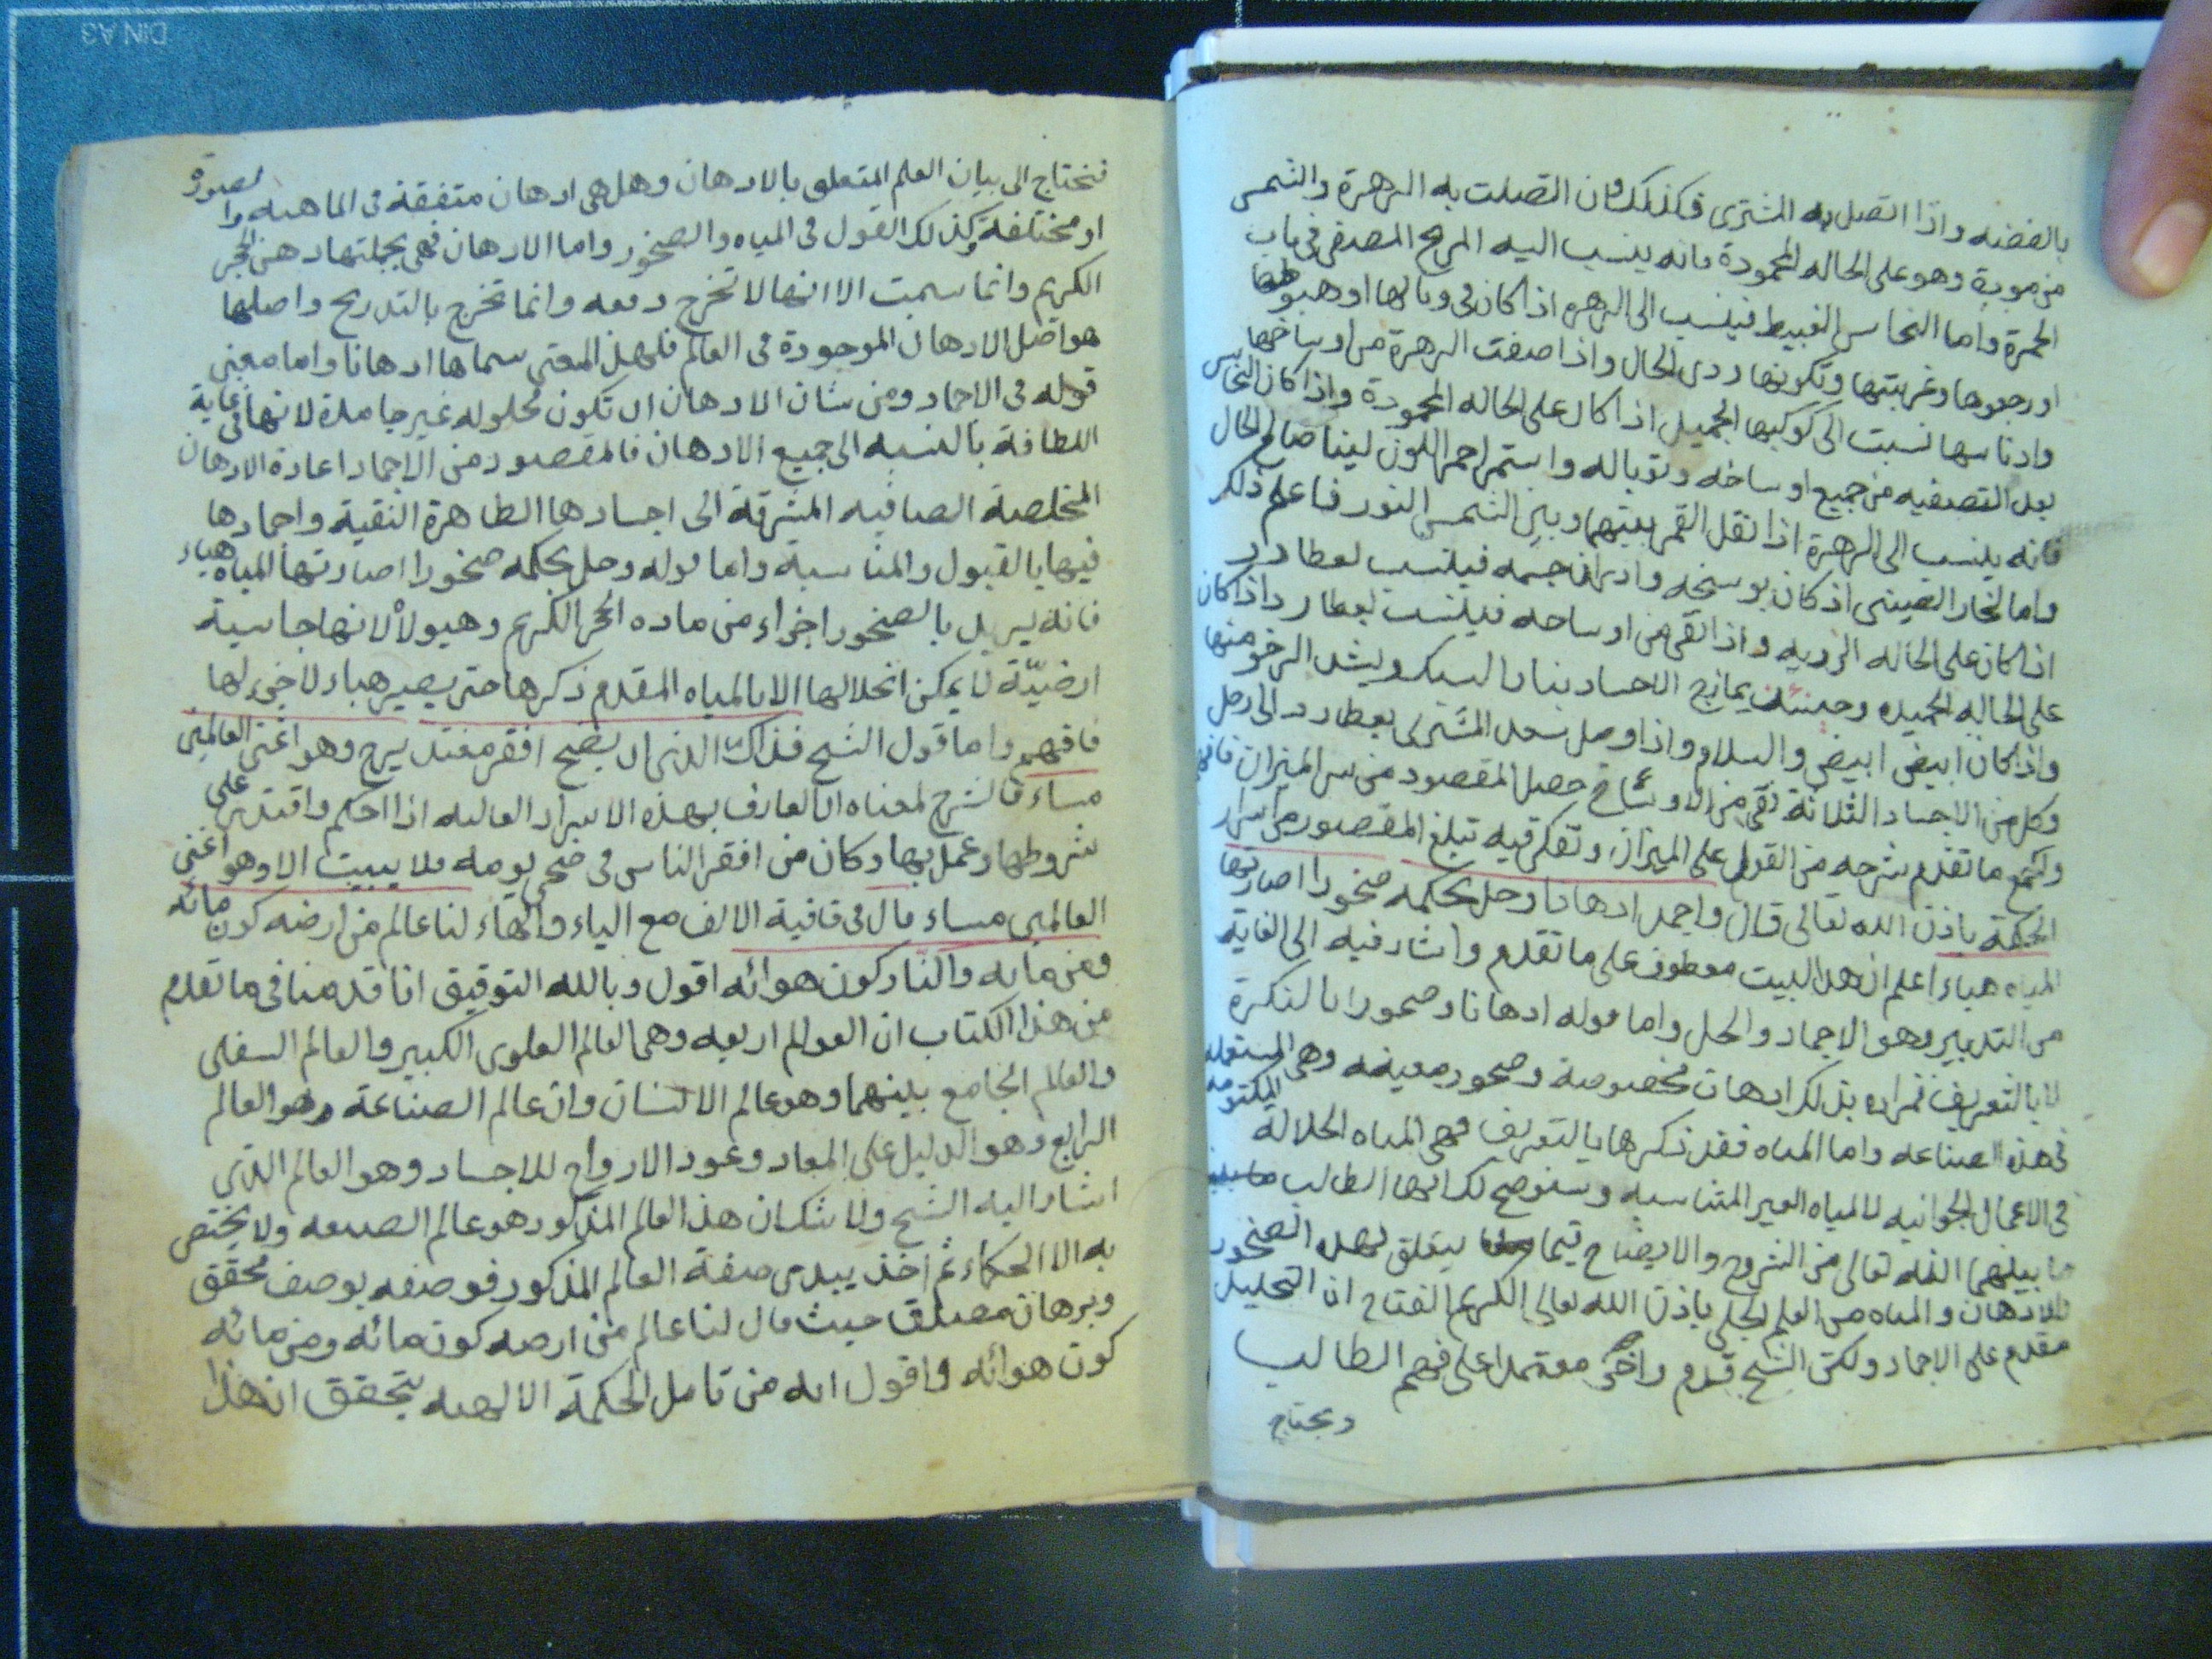 بالفضه واذا اتصل به المشترى فكذلك وان اتصلت به الزهرة والشمس
من مودة وهو على الحاله المحمودة فانه ينسب اليه المريخ المصفى فى باب
الحمرة واما النحاس الغبيط فينسب الى الزهره اذا كان فى وبالها او هبوطها
او رجعوها وغربتها وتكونها ردى الحال واذا صفت الزهرة من اوساخها
وادناسها نسبت الى كوكبها الجميل اذا كان على الحاله المحمودة واذا كان النحاس
بعد التصفيه من جميع اوساخه وتوباله واستمر احمر اللون لينا صالح الحال
فانه ينسب الى الزهرة اذا نقل القمر بينهما وبين الشمس النور فاعلم ذلك
واما الخار الصينى اذ كان بوسخه وادران جسمه فينسب لعطارد
اذا كان على الحاله الرديه واذا نقى من اوساخه فينسب لعطارد اذا كان
على الحاله الحميده وحينئذ يمازج الاجساد بنا بالسبك ويشد الرخو منها
واذا كان ابيض ابيض والسلام واذا وصل سعد المشترى بعطارد الى زحل
وكل من الاجساد الثلاثة نقى من الاوساخ حصل المقصود من سر الميزان فافهم
ولتجمع ما تقدم شرحه من القول على الميزان وتفكر فيه تبلغ المقصود من اسرار
الحكمة باذن الله تعالى قال واجمد ادهانا وحل بحكمه صخورا اصارتها
المياه هباء اعلم ان هذا البيت معطوف على ما تقدم واشار فيه الى الغاية
من التدبير وهو الاجماد والحل واما قوله ادهانا وصخورا بالنكرة
لا بالتعريف فمراده بذلك ادهان مخصوصة وصخور معينه وهى المستعمله
فى هذه الصناعه واما المياه فقد ذكرها بالتعريف فهى المياه الحلاله المكتومه
فى الاعمال الجوانيه لا المياه الغير المتناسبه وسنوضح لك ايها الطالب
ما بينهما انشا الله تعالى من الشروح والايضاح فيما يتعلق بهذه الصخور
والادهان والمياه من العلم الجلى باذن الله تعالى الكريم الفتاح ان التحليل
مقدم على الاجماد ولكن الشيخ قدم واخر معتمدا على فهم الطالب
ونحتاج
فنحتاج الى بيان العلم المتعلق بالادهان وهل هى ادهان متفقة فى الماهيه والصورة
او مختلفة وكذلك القول فى المياه والصخور واما الادهان فهى بجملتها دهن الحجر
الكريم وانما سميت الا انها لا تخرج دفعه وانما تخرج بالتدريج واصلها
هو اصل الادهان الموجودة فى العالم فلهذا المعنى سماها ادهانا واما معنى
قوله فى الاجماد ومن شان الادهان ان تكون محلوله غير جامدة لانها فى غاية
اللطافة بالنسبه الى جميع الادهان فالمقصود من الاجماد اعادة الادهان
المخلصة الصافيه المشرقة الى اجسادها الطاهرة النقية واجمادها
فيها بالقبول والمناسبة واما قوله وحل بحكمه صخورا اصارتها المياه هباء
فانه يريد بالصخور اجزاء من ماده الحجر الكريم وهيولاه لانها جاسية
ارضيّة لا يمكن انحلالها الا بالمياه المقدم ذكرها حتى يصير هباء لا جزء لها
فافهم واما قول الشيخ فذاك الذى ان يصبح افقر مغتد يرح وهو اغنى العالمين
مساء فالشرح لمعناه ان العارف بهذه الاسرار العاليه اذا احكم واقتدر على
شروطها وعمل بها وكان من افقر الناس فى ضحى يومه فلا يبيت الا وهو اغنى
العالمين مساء قال فى قافية الالف مع الياء والهاء لنا عالم من ارضه كون مائه
ومن مايه والنار كون هوائه اقول وبالله التوفيق انا قدمنا فى ما تقدم
من هذا الكتاب ان العوالم اربعه وهى العالم العلوى الكبير والعالم السفلى
والعالم الجامع بينهما وهو عالم الانسان وان عالم الصناعة وهو العالم
الرابع وهو الدليل على المعاد وعود الارواح للاجساد وهو العالم الذى
اشار اليه الشيخ ولا شك ان هذا العالم المذكور هو عالم الصنعه ولا يختص
به الا الحكماء ثم اخذ يبدى صفة العالم المذكور فوصفه بوصف محقق
وبرهان مصدق حيث قال لنا عالم من ارضه كون مائه ومن مائه
كون هوائه واقول انه من تامل الحكمة الالهيه يتحقق ان هذا